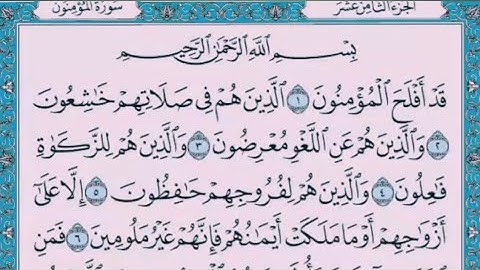 الجزء الثامن عشر
سورة المؤمنون
بِسْمِ ٱللَّهِ ٱلرَّحْمَٰنِ ٱلرَّحِيمِ
قَدْ أَفْلَحَ ٱلْمُؤْمِنُونَ ١ ٱلَّذِينَ هُمْ فِى صَلَاتِهِمْ خَٰشِعُونَ
٢ وَٱلَّذِينَ هُمْ عَنِ ٱللَّغْوِ مُعْرِضُونَ ٣ وَٱلَّذِينَ هُمْ لِلزَّكَوٰةِ
فَٰعِلُونَ ٤ وَٱلَّذِينَ هُمْ لِفُرُوجِهِمْ حَٰفِظُونَ ٥ إِلَّا عَلَىٰٓ
أَزْوَٰجِهِمْ أَوْ مَا مَلَكَتْ أَيْمَٰنُهُمْ فَإِنَّهُمْ غَيْرُ مَلُومِينَ ٦ فَمَنِ